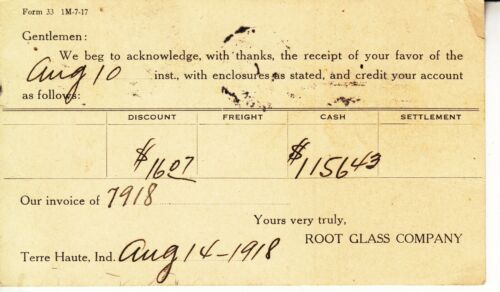 Form 33 1M-7-17
Gentlemen:
We beg to acknowledge, with thanks, the receipt of your favor of the
Aug 10 inst., with enclosures as stated, and credit your account
as follows:
DISCOUNT FREIGHT CASH SETTLEMENT
$1607 $115643
Our invoice of 7918
Yours very truly,
ROOT GLASS COMPANY
Terre Haute, Ind. Aug 14-1918